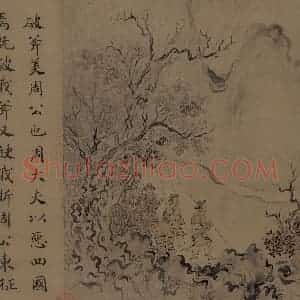 破斧美周公也周大夫以惡四國
焉既破我斧又缺我斨周公東征
Shufaziliao.com